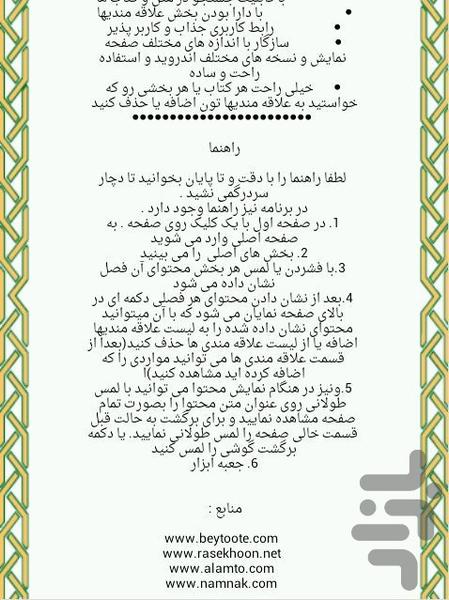 با دارا بودن بخش علاقه مندیها
رابط کاربری جذاب و کاربر پذیر
سازگار با اندازه های مختلف صفحه
نمایش و نسخه های مختلف اندروید و استفاده
راحت و ساده
خیلی راحت هر کتاب یا هر بخشی رو که
خواستید به علاقه مندیها تون اضافه یا حذف کنید
راهنما
لطفا راهنما را با دقت و تا پایان بخوانید تا دچار
سردرگمی نشید .
در برنامه نیز راهنما وجود دارد .
1. در صفحه اول با یک کلیک روی صفحه . به
صفحه اصلی وارد می شوید
2. بخش های اصلی را می بینید
3.با فشردن یا لمس هر بخش محتوای آن فصل
نشان داده می شود
4.بعد از نشان دادن محتوای هر فصلی دکمه ای در
بالای صفحه نمایان می شود که با آن میتوانید
محتوای نشان داده شده را به لیست علاقه مندیها
اضافه یا از لیست علاقه مندی ها حذف کنید(بعدا از
قسمت علاقه مندی ها می توانید مواردی را که
اضافه کرده اید مشاهده کنید)ا
5.ونیز در هنگام نمایش محتوا می توانید با لمس
طولانی روی عنوان متن محتوا را بصورت تمام
صفحه مشاهده نمایید و برای برگشت به حالت قبل
قسمت خالی صفحه را لمس طولانی نمایید. یا دکمه
برگشت گوشی را لمس کنید
6. جعبه ابزار
منابع :
www.beytoote.com
www.rasekhoon.net
www.alamto.com
www.namnak.com
بازار